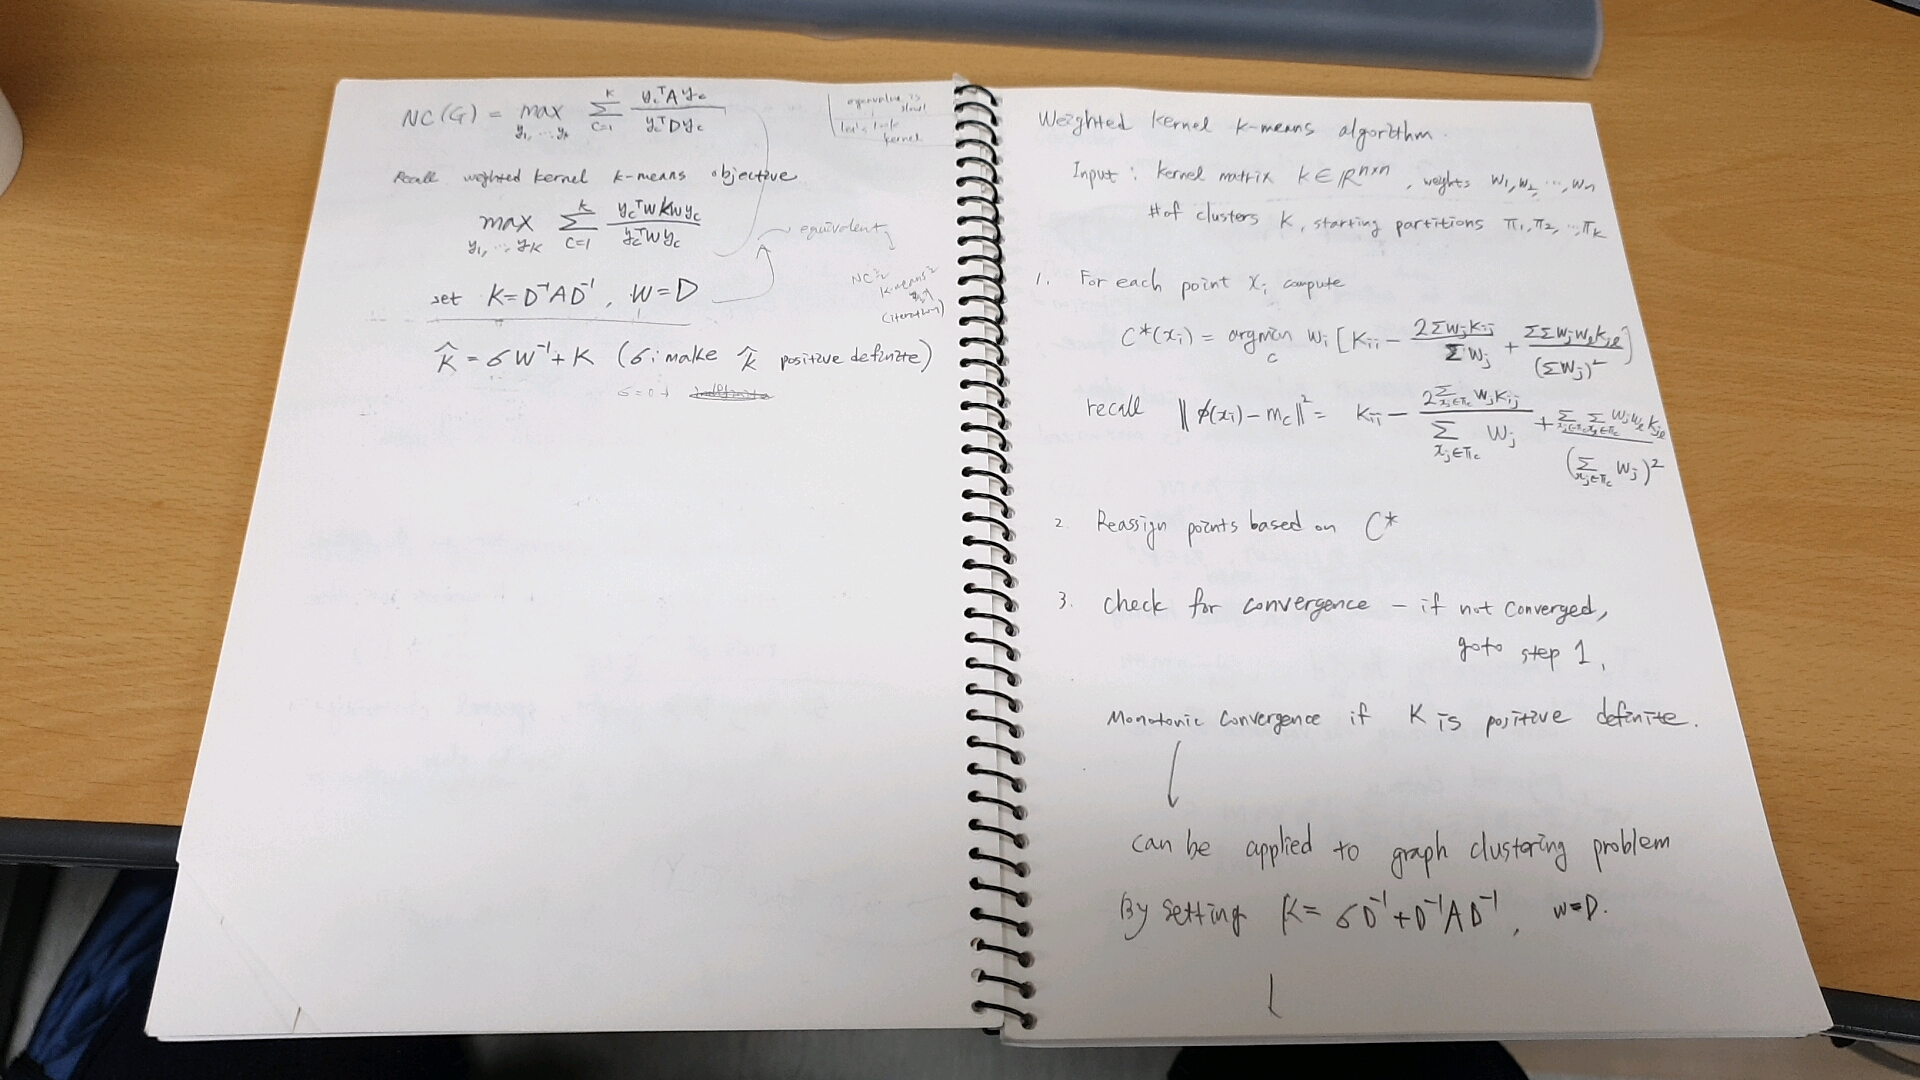 NC(G) = max_{y₁, ..., yₖ} Σ_{c=1}^{k} (y_c^T A y_c) / (y_c^T D y_c)
eigenvalue is
slow!
let's
kernel
Recall weighted kernel k-means objective
max_{y₁, ..., yₖ} Σ_{c=1}^{k} (y_c^T W K W y_c) / (y_c^T W y_c)
equivalent
set K = D⁻¹AD⁻¹, W = D
NC
k-means
(iteration)
K̂ = σW⁻¹ + K (σ: make K̂ positive definite)
σ = 0
Weighted kernel k-means algorithm.
Input: kernel matrix K ∈ R^{n×n}, weights w₁, w₂, ..., wₙ
# of clusters k, starting partitions π₁, π₂, ..., πₖ
1. For each point xᵢ compute
C*(xᵢ) = argmin_c wᵢ [Kᵢᵢ − (2Σwⱼkᵢⱼ) / (Σwⱼ) + (ΣΣwⱼwₗkⱼₗ) / (Σwⱼ)²]
recall ‖ϕ(xᵢ) − m_c‖² = Kᵢᵢ − (2Σ_{xⱼ∈π_c} wⱼkᵢⱼ) / (Σ_{xⱼ∈π_c} wⱼ) + (Σ_{xⱼ∈π_c} Σ_{xₗ∈π_c} wⱼwₗkⱼₗ) / (Σ_{xⱼ∈π_c} wⱼ)²
2. Reassign points based on C*
3. check for convergence – if not converged,
goto step 1.
Monotonic convergence if K is positive definite.
↓
can be applied to graph clustering problem
By setting K = σD⁻¹ + D⁻¹AD⁻¹, w=D.